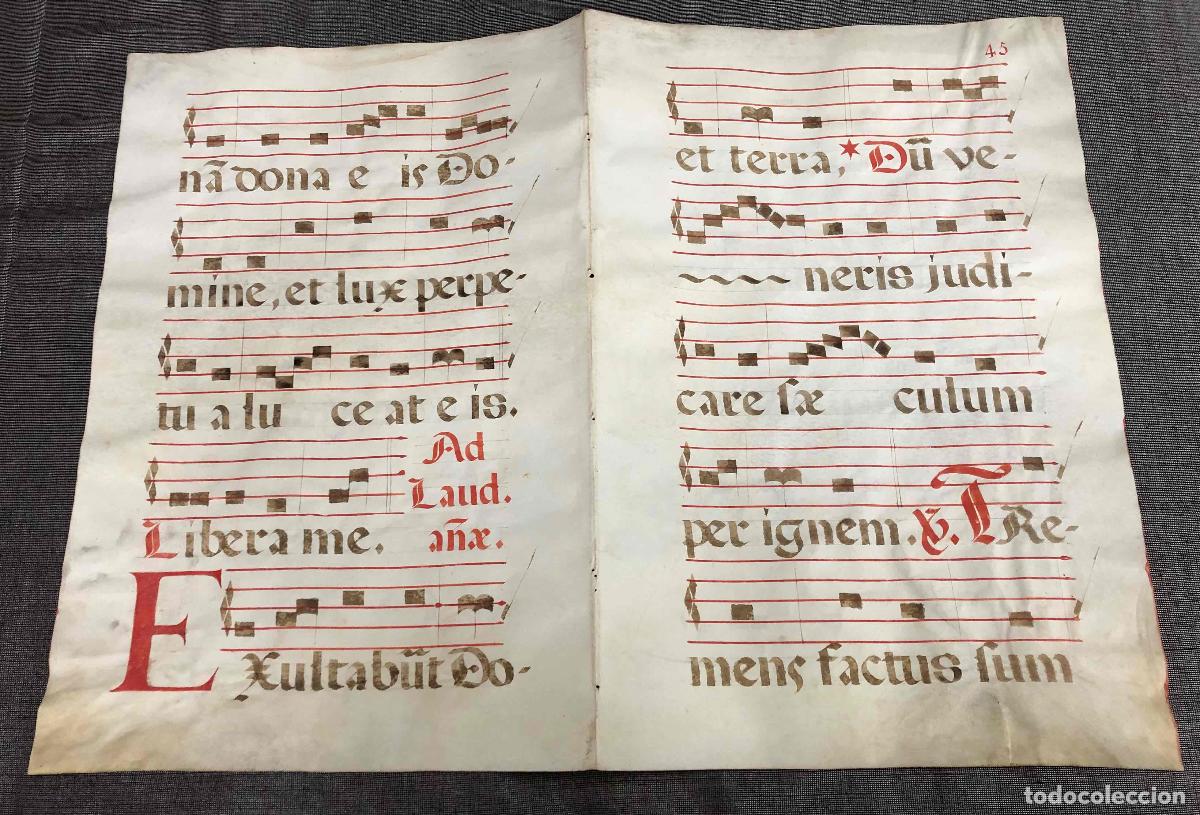 nā dona e is Do-
mine, et lux perpe-
tu a lu ce at e is.
Ad
Laud.
Libera me. añæ.
EXultabūt Do-
45
et terra, * Dū ve-
neris judi-
care ſæ culum
per ignem. ℣. TRe-
mens factus ſum
todocoleccion